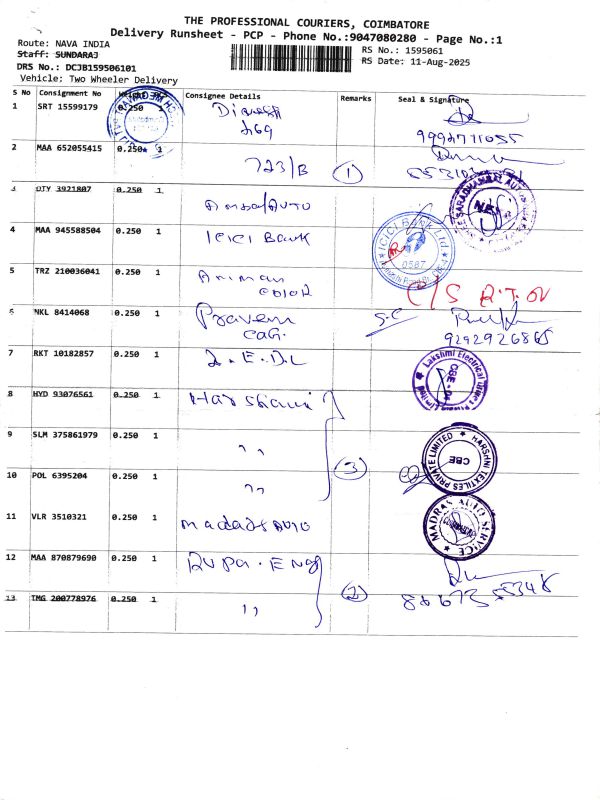 THE PROFESSIONAL COURIERS, COIMBATORE
Delivery Runsheet - PCP - Phone No.:9047080280 - Page No.:1
Route: NAVA INDIA
RS No.: 1595061
Staff: SUNDARAJ
RS Date: 11-Aug-2025
DRS No.: DCJB159506101
Vehicle: Two Wheeler Delivery
S No Consignment No Weight Consignee Details Remarks Seal & Signature
1 SRT 15599179 0.250 1 Dinesh
269
9992711055
2 MAA 652055415 0.250 1 723/B 1
3 QTY 3921807 0.250 1 Amsa/Auto
4 MAA 945588504 0.250 1 ICICI Bank ICICI Bank Ltd 0587
5 TRZ 210036041 0.250 1 Animan
color C/S R.T.O
6 NKL 8414068 0.250 1 Praveen
CaG. S.C
9292926865
7 RKT 10182857 0.250 1 L.E.D.L Lakshmi Electrical Limited CBE
8 HYD 93076561 0.250 1 Harshani
9 SLM 375861979 0.250 1 ,, 3 HARSANI TEXTILES PRIVATE LIMITED CBE
10 POL 6395204 0.250 1 ,,
11 VLR 3510321 0.250 1 Madras Auto MADRAS AUTO SERVICE
12 MAA 870879690 0.250 1 Rupa. Eng
13 TMG 200778976 0.250 1 ,, 2